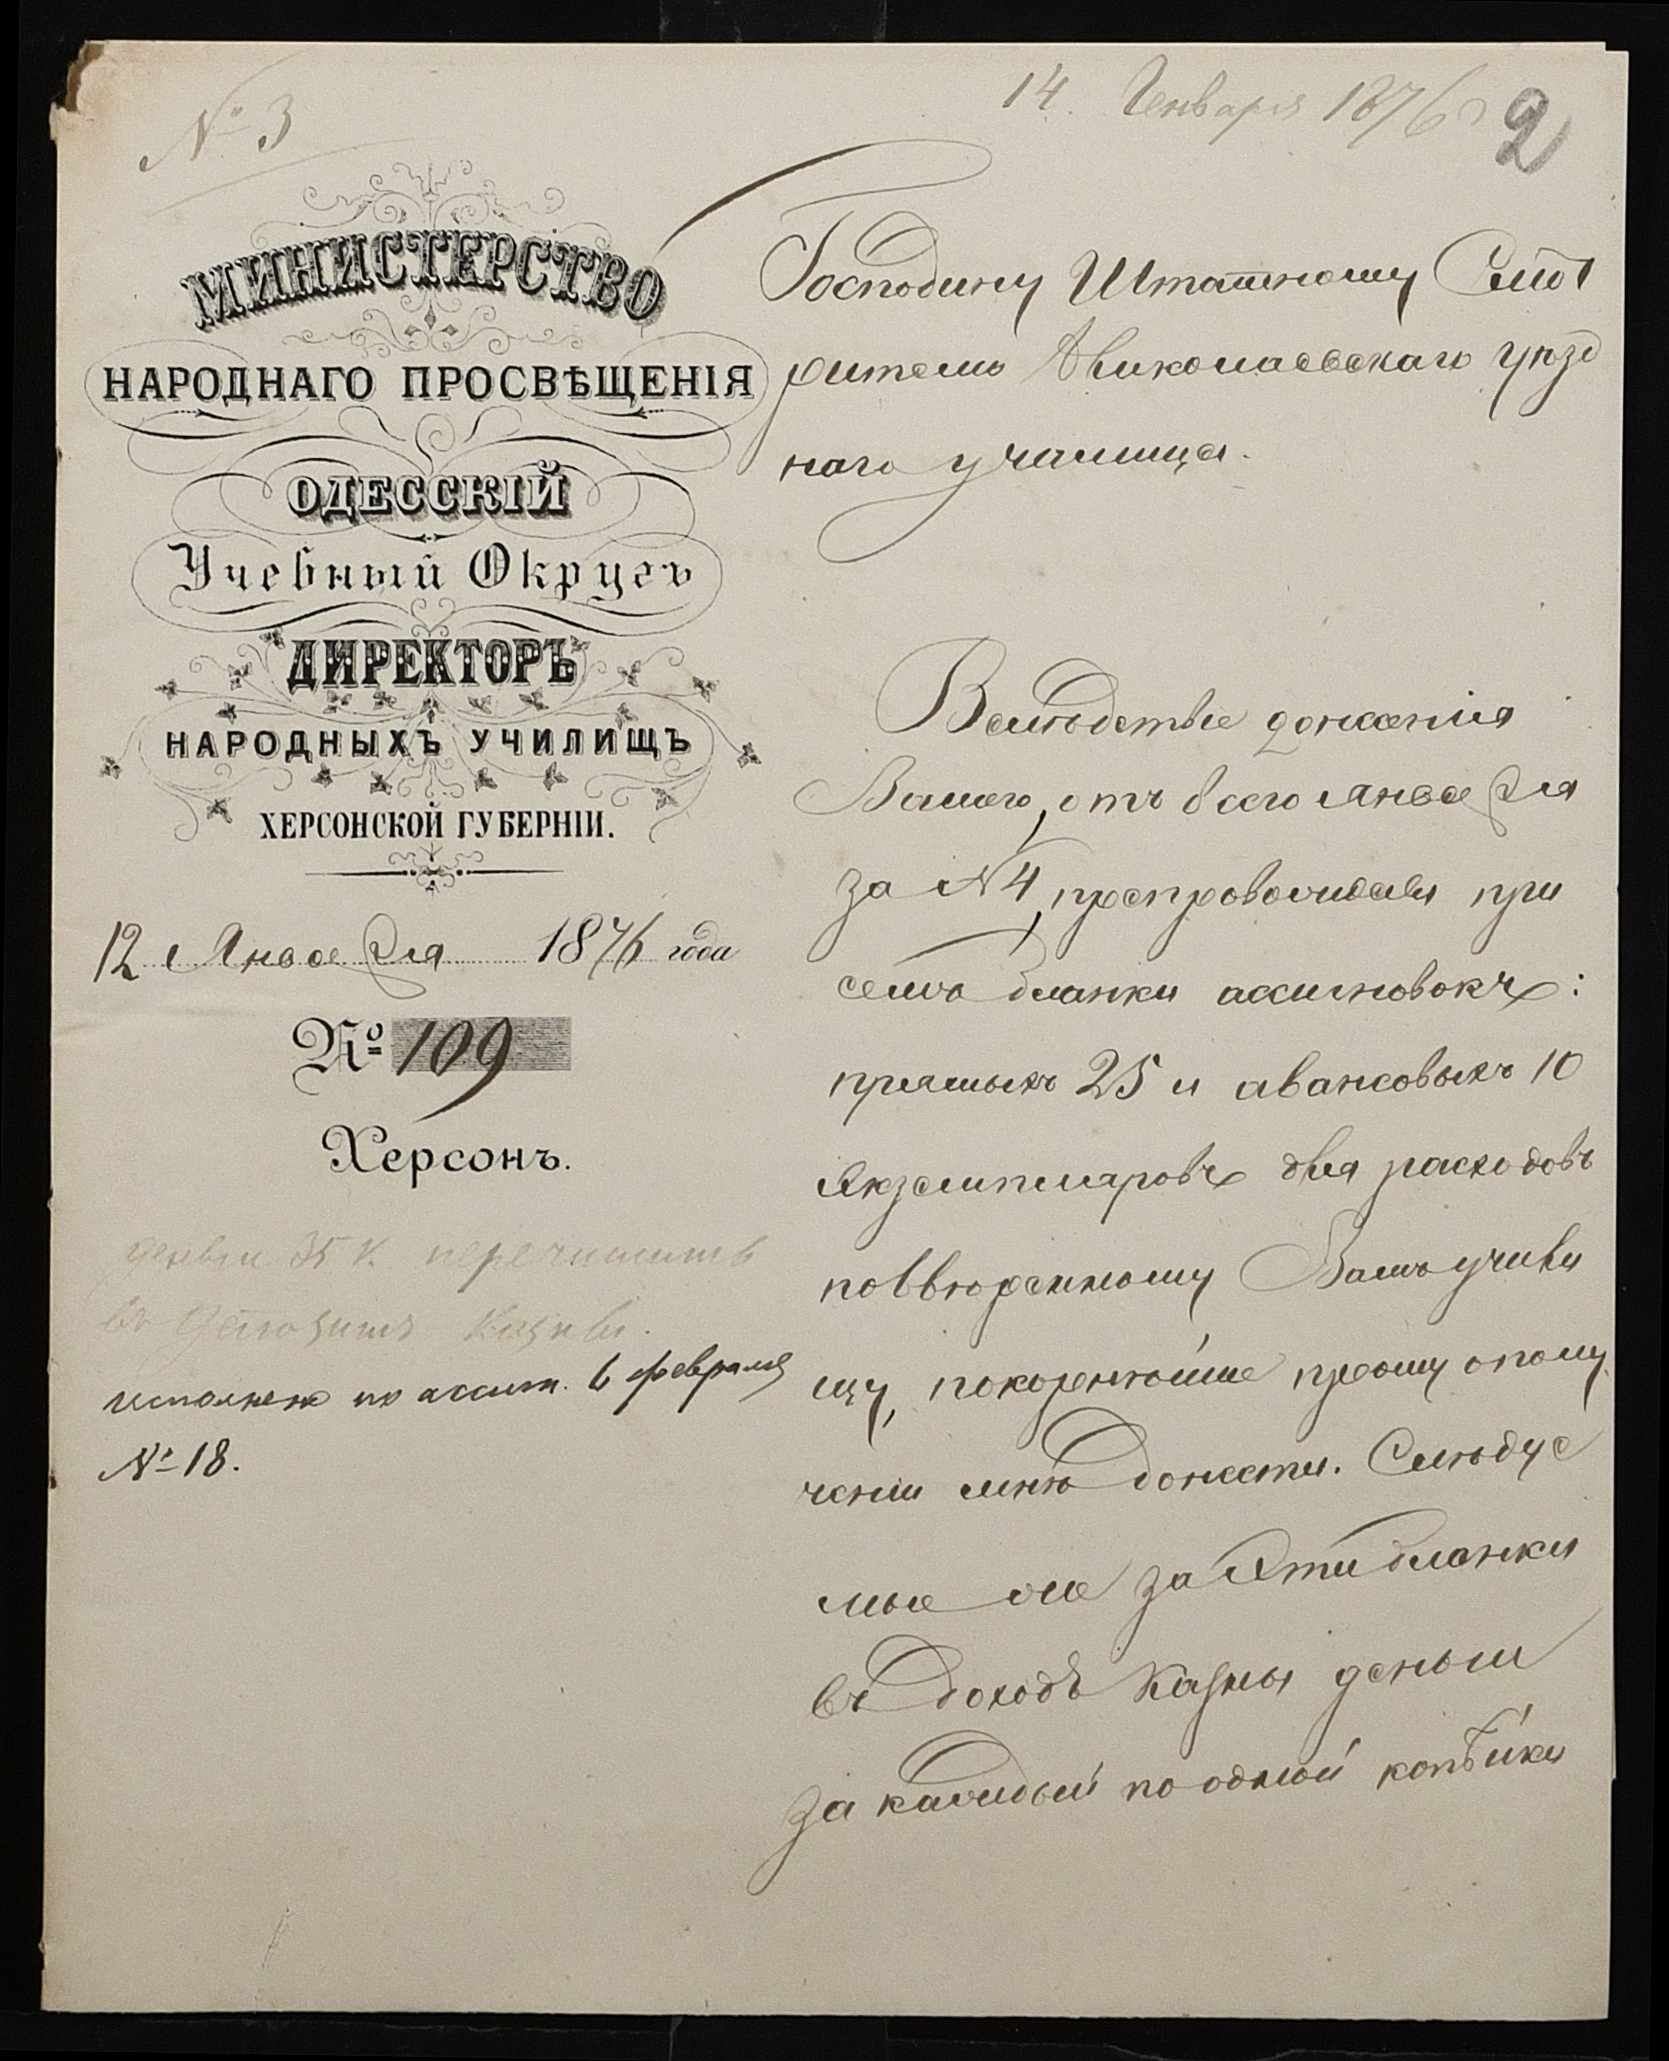 № 3
14 Генваря 1876
2
МИНИСТЕРСТВО
НАРОДНАГО ПРОСВѢЩЕНІЯ
ОДЕССКІЙ
Учебный Округъ
ДИРЕКТОРЪ
НАРОДНЫХЪ УЧИЛИЩЪ
ХЕРСОНСКОЙ ГУБЕРНІИ.
12 Января 1876 года
№ 109
Херсонъ.
деньги 35 к. перечислить
въ депозитъ казны.
исполнено по ассигн. 6 февраля
№ 18.
Господину Штатному Смот
рителю Николаевскаго уѣзд
наго училища.
Вслѣдствіе донесенія
Вашего, отъ 8 сего Января
за № 4, препровождая при
семъ бланки ассигновокъ:
прямыхъ 25 и авансовыхъ 10
экземпляровъ для расходовъ
по ввѣренному Вамъ учили
щу, покорнѣйше прошу о полу
ченіи мнѣ донести. Слѣдуе
мые же за эти бланки
въ доходъ казны деньги
за каждый по одной копѣйки